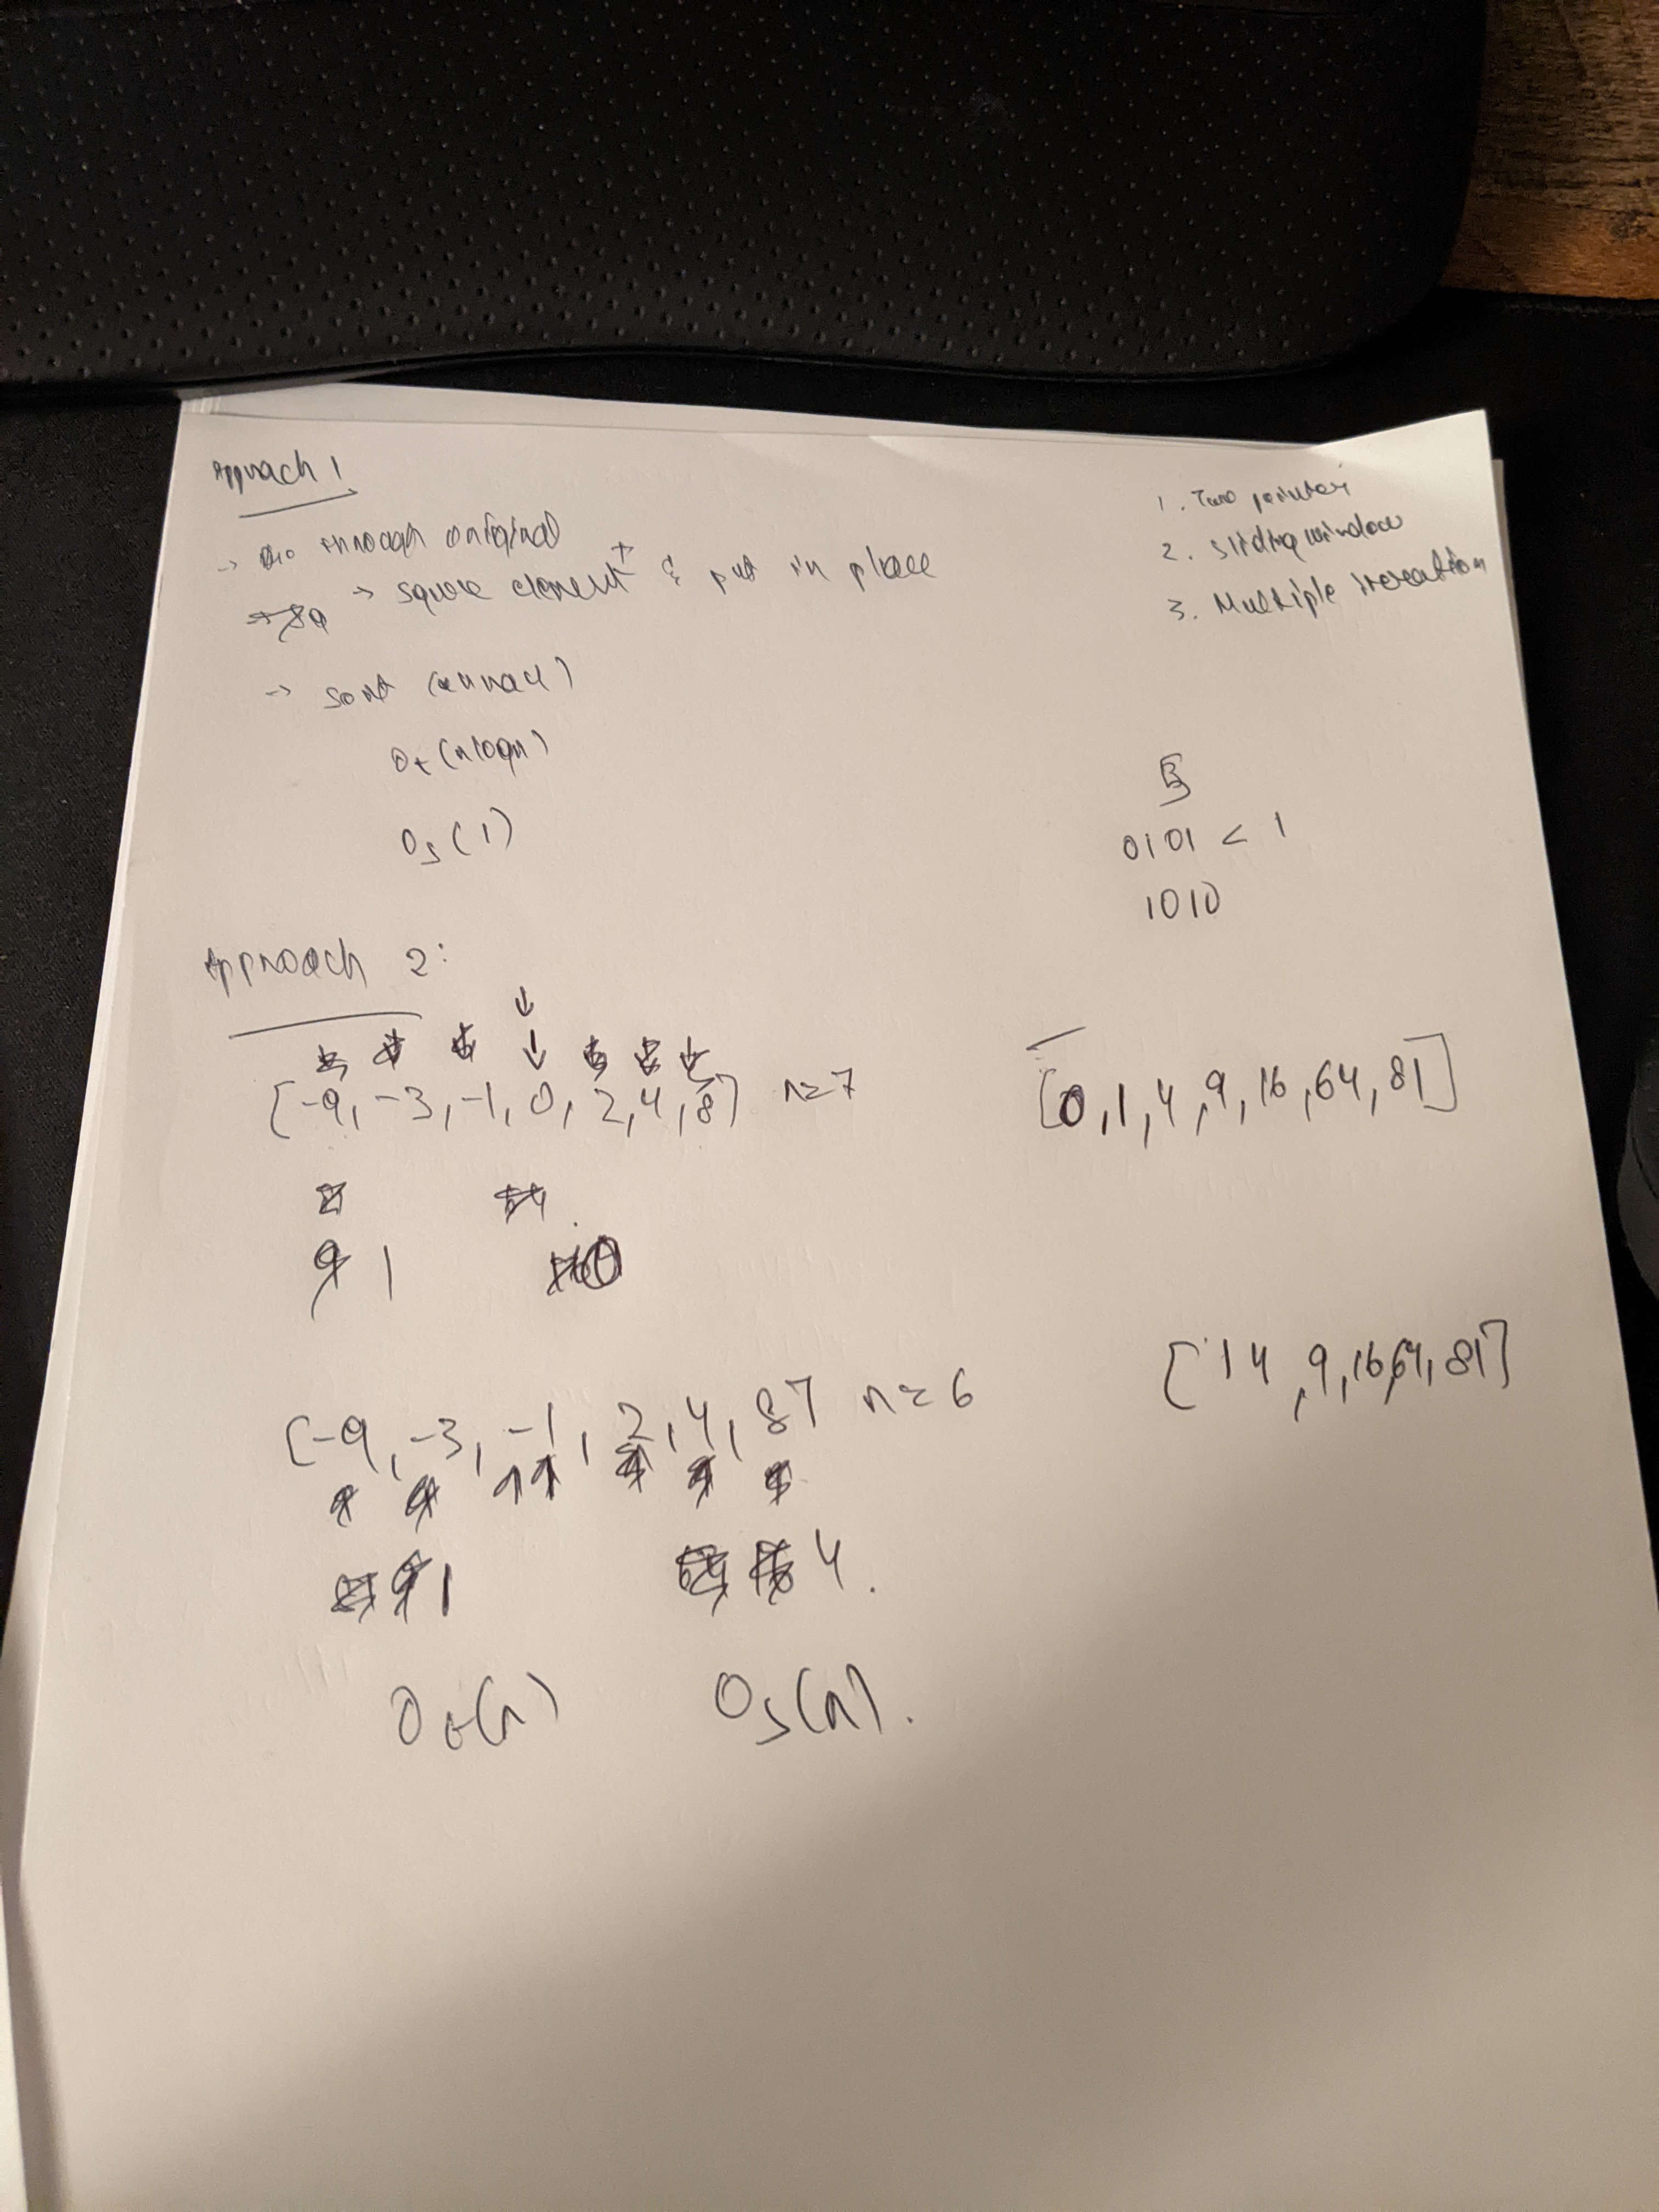 Approach 1
→ Go through original
→ square element & put in place
→ sort (array)
Ot (nlogn)
Os (1)
1. Two pointer
2. Sliding window
3. Multiple iteration
5
0101 < 1
1010
Approach 2:
[-9, -3, -1, 0, 2, 4, 8] n=7
[0, 1, 4, 9, 16, 64, 81]
9 1 0
[-9, -3, -1, 2, 4, 8] n=6
[1 4, 9, 16, 64, 81]
9 1 64 16 4.
Ot(n) Os(n).